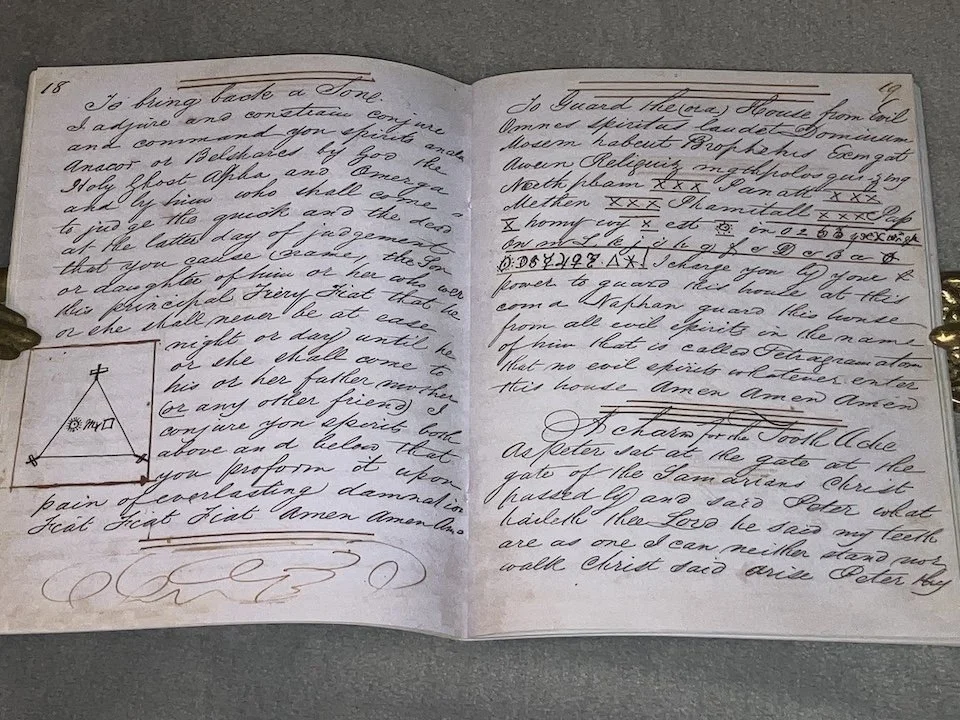 18
To bring back a Sone
I adjure and constrain conjure
and command you spirits
Anacor or Belshares by God the
Holy Ghost Apha, and Omerga
and by him who shall come
to judge the quick and the dead
at the latter day of judgement
that you cause (name, the Son
or daughter of him or her who
this principal Fiery Fiat that he
or she shall never be at ease
night or day until he
or she shall come to
his or her father mother
(or any other friend) I
conjure you sperits both
above and below that
you proform it upon
pain of everlasting damnation
Fiat Fiat Fiat Amen Amen Amn
19
To Guard the (ora) House from Evil
Omnes spiritus laudet Dominum
Mosem habeut Prophehis Exmgat
Awein Religuiz
Noeth pbam XXX Fanatt XXX
Methen XXX Phamitall XXX Pap
X homy X est in
on m L k j i h g f e D c B a
I charge you by your
power to guard this house at this
com a Naphan guard this house
from all evil spirits in the name
of him that is called Tetragramatom
that no evil spirits whatever enter
this house Amen Amen Amen
A charm for the Tooth Ache
As Peter sat at the gate at the
gate of the Samarians Christ
passed by and said Peter what
haileth thee Lord he said my teeth
are as one I can neither stand nor
walk Christ said arise Peter